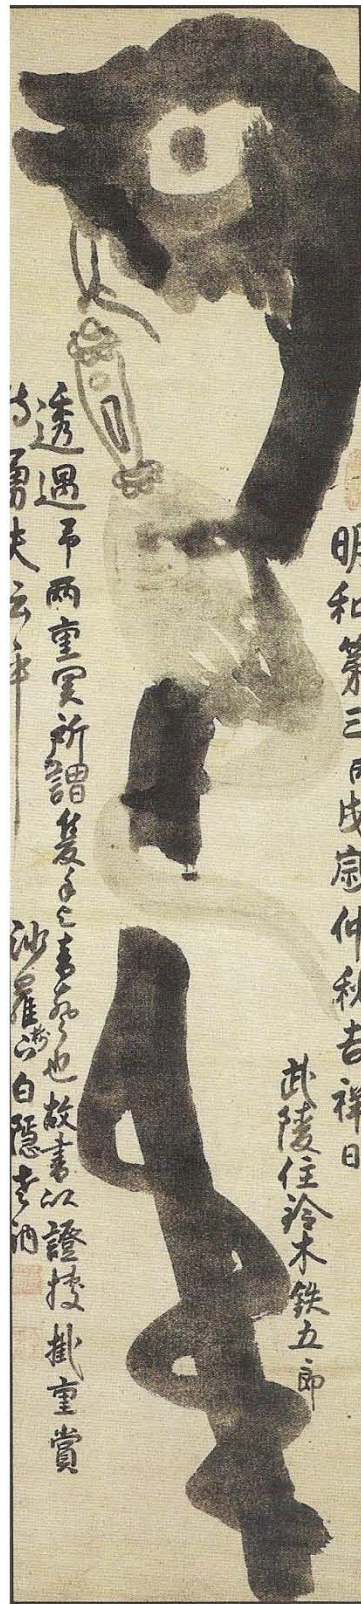 明和第三丙戌仲秋吉祥日
武陵住鈴木鉄五郎
透過両重関所謂隻手音聲也故書以證據掛重賞
待勇夫云爾
沙羅樹下白隠老衲